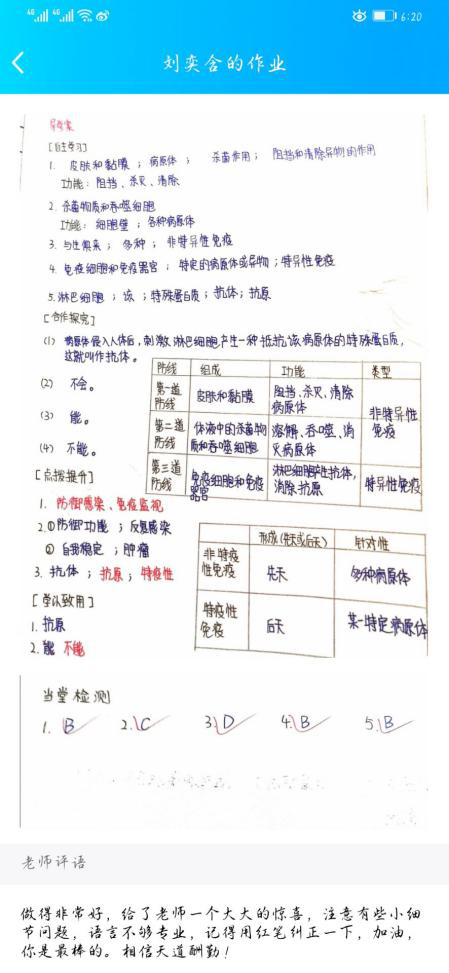 4G 4G 6:20
刘奕含的作业
导学案
[自主学习]
1. 皮肤和黏膜；病原体；杀菌作用；阻挡和清除异物的作用
功能：阻挡、杀灭、清除
2. 杀菌物质和吞噬细胞
功能：细胞壁；各种病原体
3. 与生俱来；多种；非特异性免疫
4. 免疫细胞和免疫器官；特定的病原体或异物；特异性免疫
5. 淋巴细胞；该；特殊蛋白质；抗体；抗原
[合作探究]
(1) 病原体侵入人体后，刺激淋巴细胞产生一种抵抗该病原体的特殊蛋白质，
这就叫作抗体。
(2) 不会。
(3) 能。
(4) 不能。
防线 组成 功能 类型
第一道防线 皮肤和黏膜 阻挡、杀灭、清除病原体 非特异性免疫
第二道防线 体液中的杀菌物质和吞噬细胞 溶解、吞噬、消灭病原体
第三道防线 免疫细胞和免疫器官 淋巴细胞产生抗体，消除抗原 特异性免疫
[点拨提升]
1. 防御感染、免疫监视
2.①防御功能；反复感染
② 自我稳定；肿瘤
3. 抗体；抗原；特疫性
形成(先天或后天) 针对性
非特疫性免疫 先天 多种病原体
特疫性免疫 后天 某一特定病原体
[学以致用]
1. 抗原
2. 能 不能
当堂检测
1. B 2. C 3. D 4. B 5. B
老师评语
做得非常好，给了老师一个大大的惊喜，注意有些小细
节问题，语言不够专业，记得用红笔纠正一下，加油，
你是最棒的。相信天道酬勤！